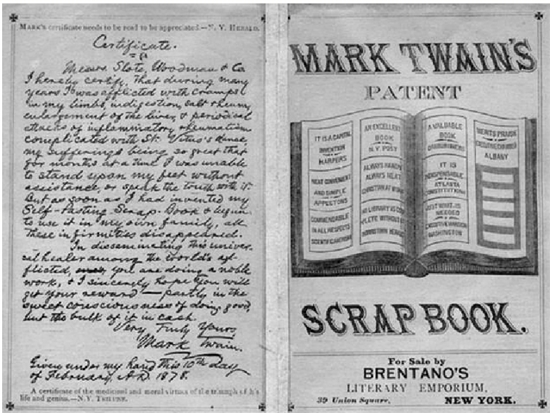 MARK'S certificate needs to be read to be appreciated.—N. Y. HERALD.
Certificate.
Messrs Slote, Woodman & Co
I hereby certify, that during many
years I was afflicted with cramps
in my limbs, indigestion, salt rheum,
enlargement of the liver, & periodical
attacks of inflammatory rheumatism
complicated with St. Vitus's dance,
my sufferings being so great that
for months at a time I was unable
to stand upon my feet without
assistance, or speak the truth with it.
But as soon as I had invented my
Self-Pasting Scrap-Book & begun
to use it in my own family, all
these infirmities disappeared.
In disseminating this univer-
sal healer among the world's af-
flicted, you are doing a noble
work, & I sincerely hope you will
get your reward—partly in the
sweet consciousness of doing good,
but the bulk of it in cash.
Very Truly Yours,
Mark Twain.
Given under my hand this 10th day
of February, A.D. 1878.
A certificate of the medicinal and moral virtues of the triumph of his
life and genius.—N.Y. TRIBUNE.
MARK TWAIN'S
PATENT
IT IS A CAPITAL
INVENTION
HARPERS
MOST CONVENIENT
AND SIMPLE
APPLETONS
COMMENDABLE
IN ALL RESPECTS
SCIENTIFIC AMERICAN
AN EXCELLENT
BOOK
N.Y. POST
ALWAYS READY
ALWAYS NEAT
CHRISTIAN AT WORK
NO LIBRARY IS COM-
PLETE WITHOUT IT
A VALUABLE
BOOK
IT IS
INDISPENSABLE
ATLANTA
CONSTITUTION
JUST WHAT IS
NEEDED
WASHINGTON
MERITS PRAISE
EXECUTIVE CHAMBER
ALBANY
SCRAP BOOK.
For Sale by
BRENTANO'S
LITERARY EMPORIUM,
39 Union Square, NEW YORK.